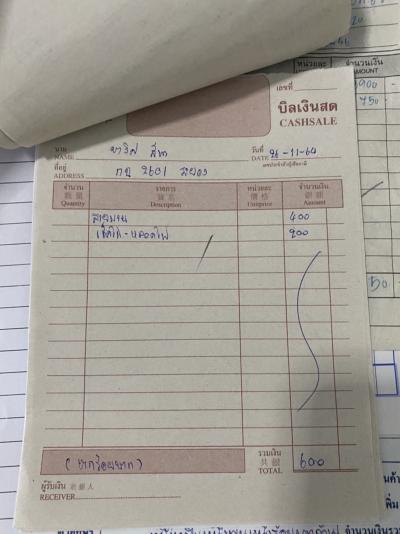 จำนวนเงิน
AMOUNT
900
750
เลขที่
บิลเงินสด
CASHSALE
นาม
NAME
วันที่
DATE 26-11-64
เลขประจำตัวผู้เสียภาษี
ที่อยู่
ADDRESS กฉ 2601 ระยอง
จำนวน รายการ หน่วยละ จำนวนเงิน
數量 貨名 價格 銀額
Quantity Description Unitprice Amount
สายพาน 400
200
(หกร้อยบาท) รวมเงิน
共銀
TOTAL 600
ผู้รับเงิน 收銀人
RECEIVER